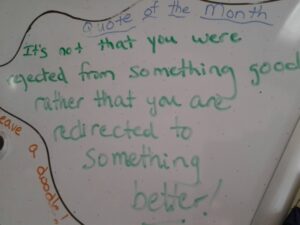 Quote of the Month
It's not that you were
rejected from something good
rather that you are
redirected to
something
better!
eave
a doodle!